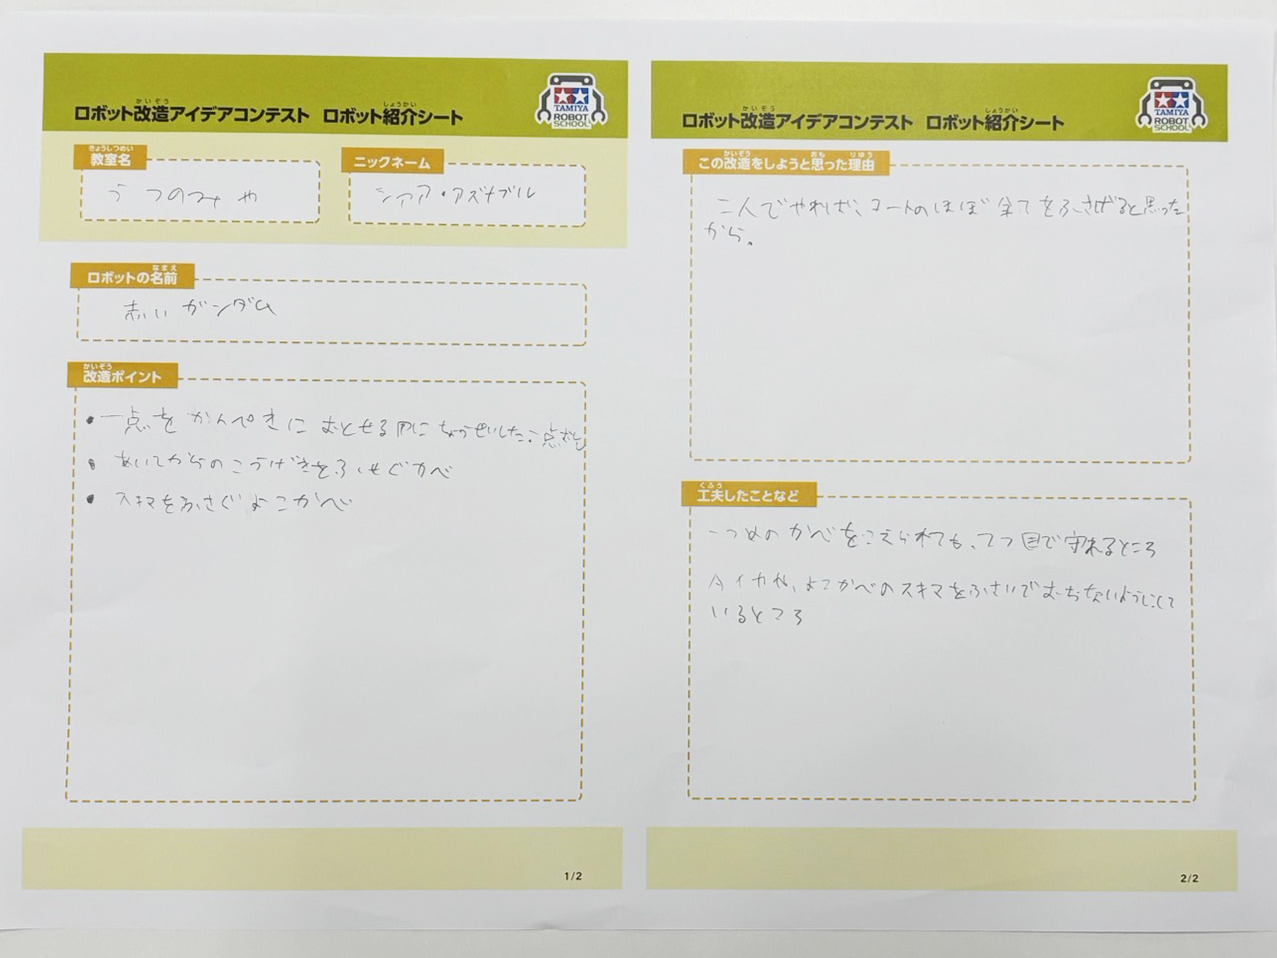 ロボット改造アイデアコンテスト ロボット紹介シート
かいぞう
しょうかい
TAMIYA
ROBOT
SCHOOL
教室名
きょうしつめい
うつのみや
ニックネーム
シァア・アズナブル
ロボットの名前
なまえ
赤いガンダム
改造ポイント
かいぞう
・一点をかんぺきにおとせる用にちょうせいした
・あいてからのこうげきをふせぐかべ
・スキマをふさぐよこかべ
1/2
ロボット改造アイデアコンテスト ロボット紹介シート
かいぞう
しょうかい
TAMIYA
ROBOT
SCHOOL
この改造をしようと思った理由
かいぞう
おも
りゆう
二人でやれば、コートのほぼ全てをふさげると思った
から。
工夫したことなど
くふう
一つめのかべをこえられても、二つ目で守れるところ
よこかべのスキマをふさいでおちないようにして
いるところ
2/2